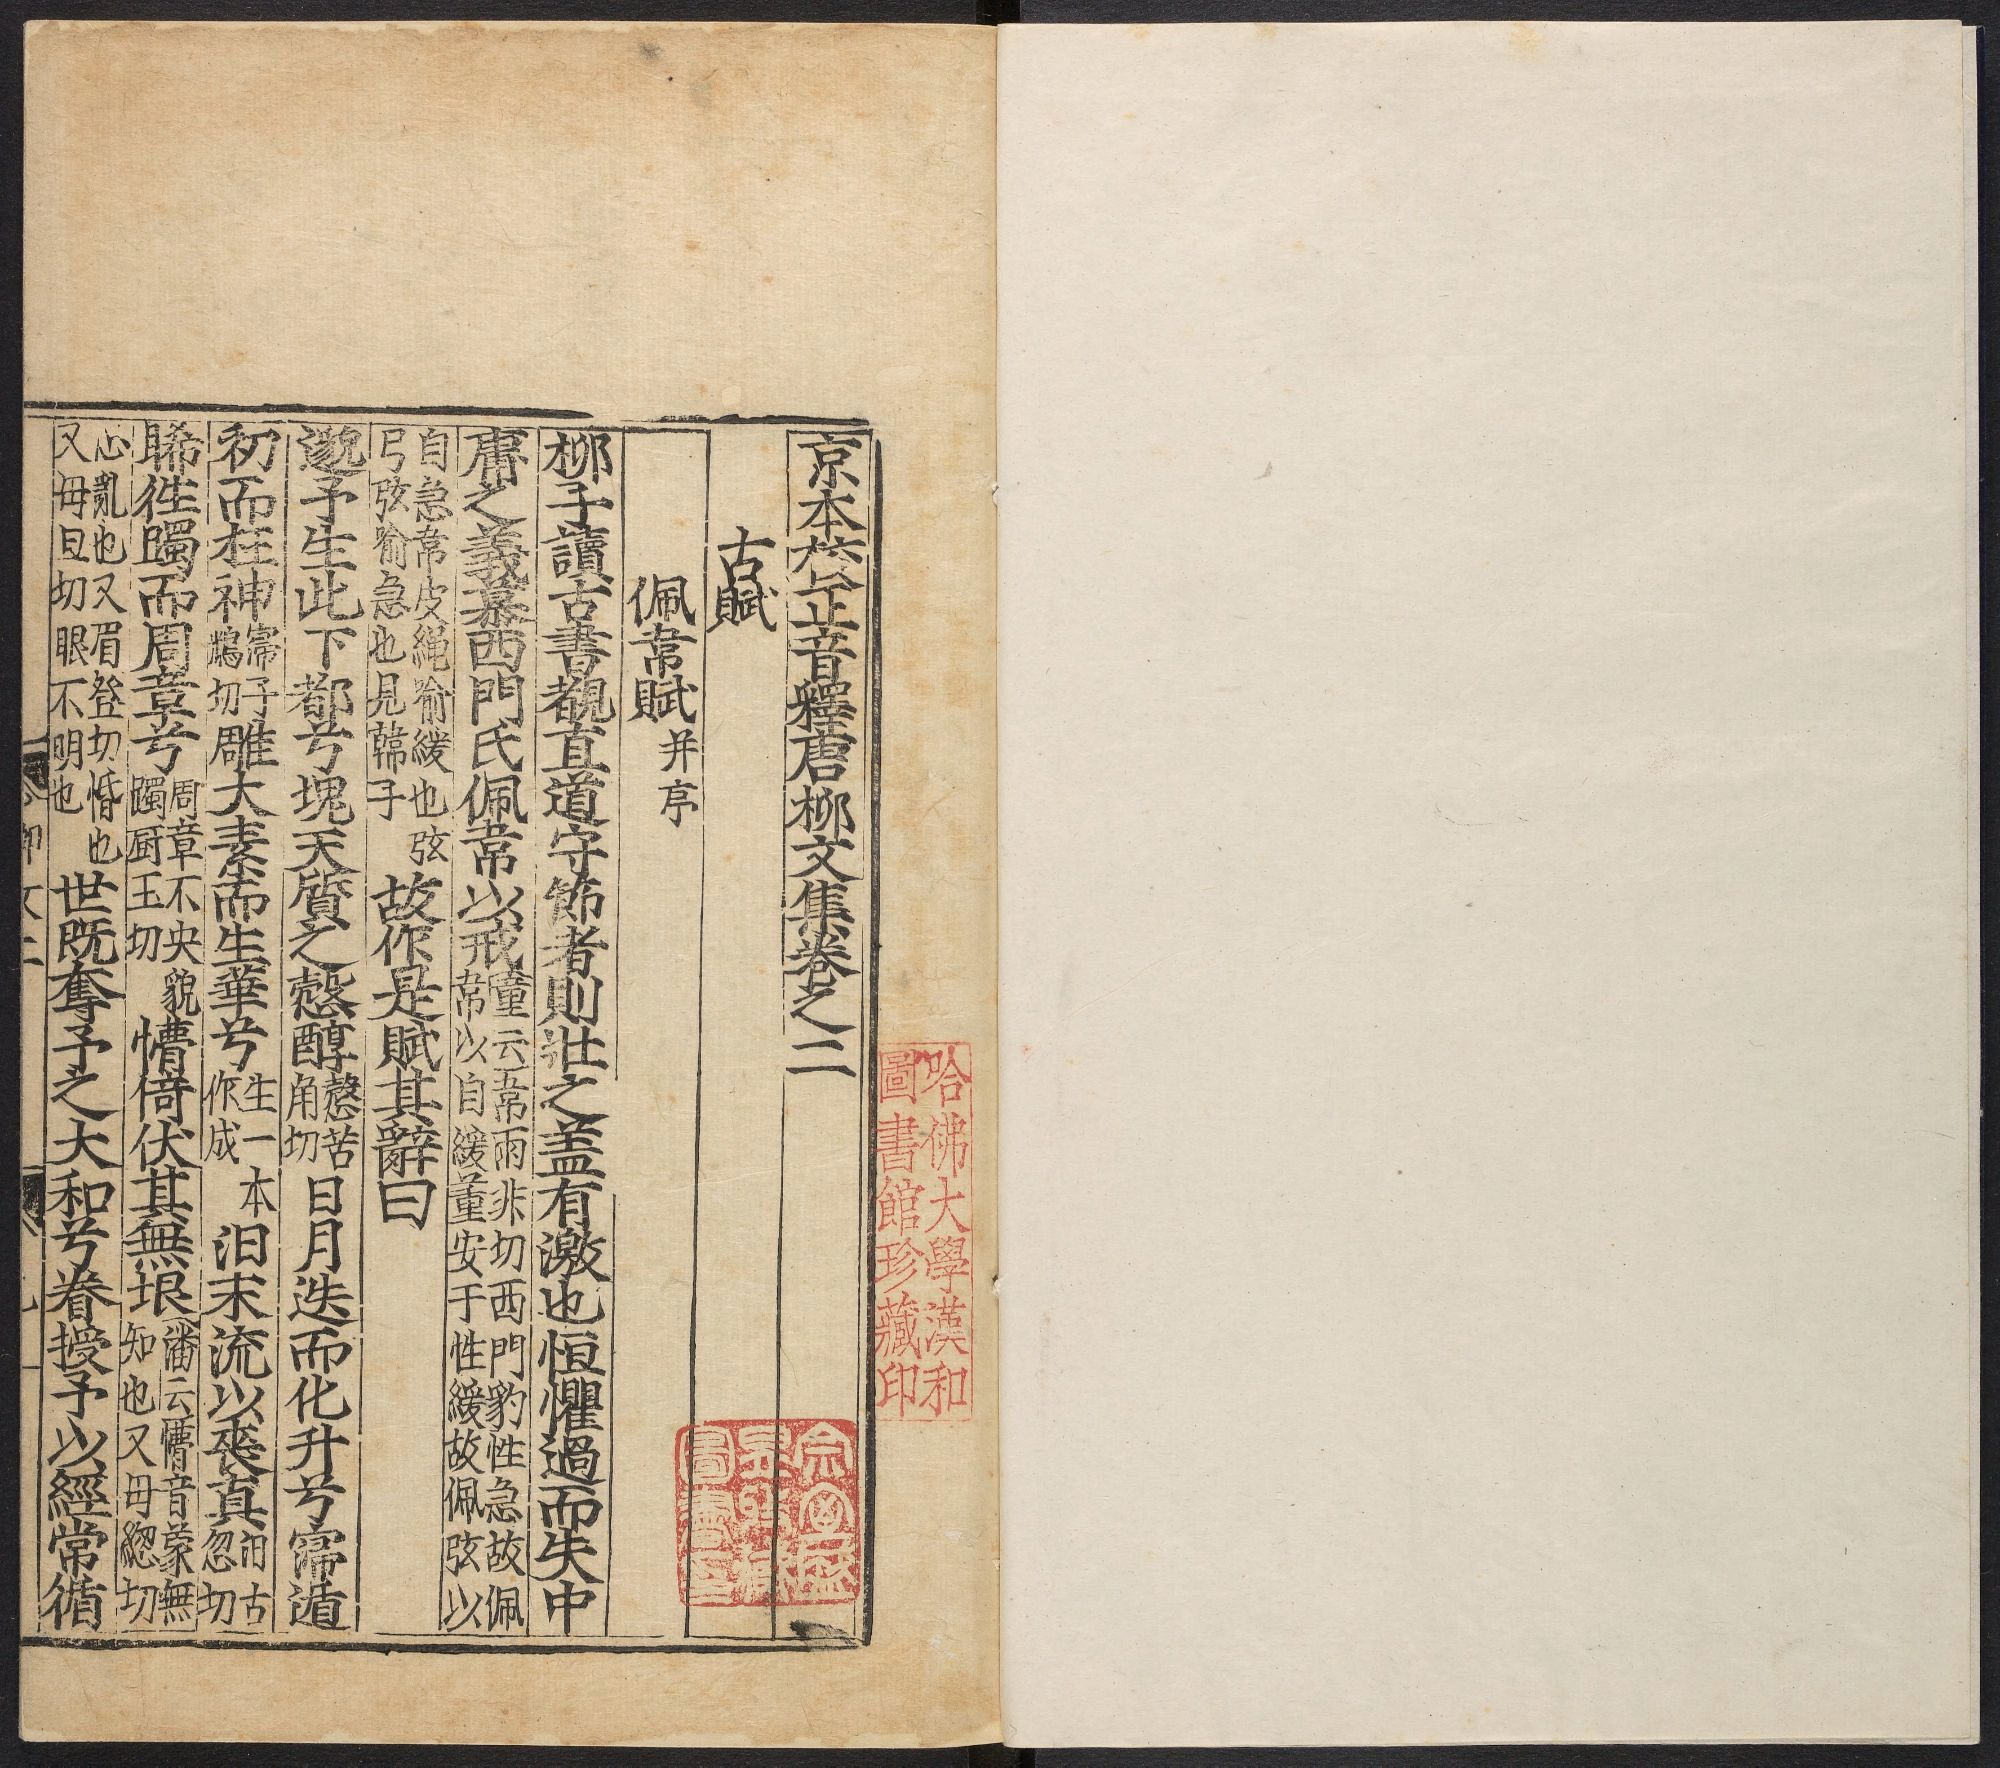 哈佛大學漢和
圖書館珍藏印
京本校正音釋唐柳文集卷之二
古賦
佩韋賦并序
柳子讀古書覩直道守節者則壯之盖有激也恒懼過而失中
庸之義慕西門氏佩韋以戒童云韋雨非切西門豹性急故佩韋以自緩董安于性緩故佩弦以
自急韋皮繩喻緩也弦弓弦喻急也見韓子故作是賦其辭曰
邈予生此下都兮塊天質之慤醇慤苦角切日月迭而化升兮寖遁
初而枉神寖子鴆切雕大素而生華兮生一本作成汩末流以喪真汩古忽切
睎往躅而周章兮周章不央貌躅厨玉切懵倚伏其無垠潘云懵音蒙無知也又毋緫切
心亂也又眉登切惛也又毋亘切眼不明也世既奪予之大和兮眷授予以經常循